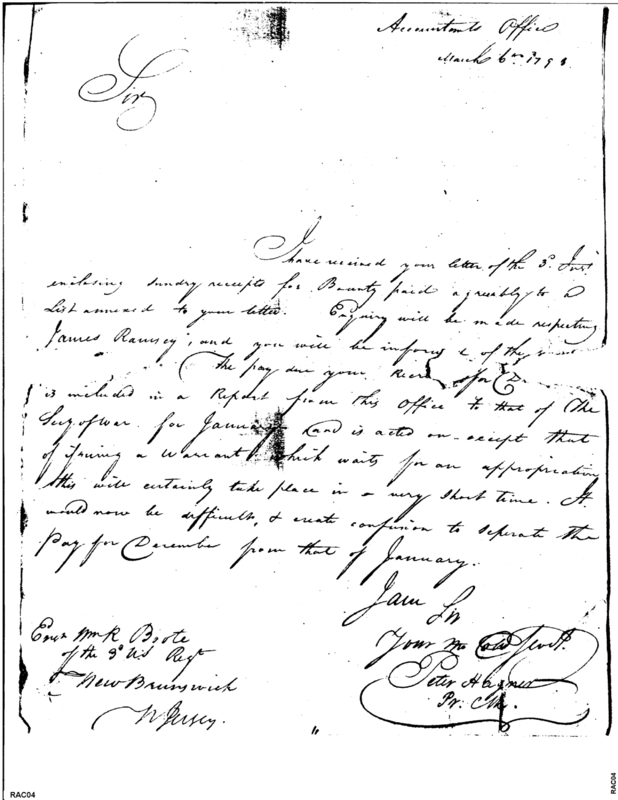 Accountants Office
March 6th 179
Sir
I have received your letter of the 3d Inst
enclosing sundry receipts for Bounty paid agreably to a
List annexed to your letter. Enquiry will be made respecting
James Ramsey, and you will be inform d of the
The pay due your for D
is included in a Report from this Office to that of the
Secy of War for January and is acted on except that
of issuing a Warrant which waits for an appropriation
this will certainly take place in a very short time. It
would now be difficult, & create confusion to seperate the
Pay for December from that of January.
I am Sir
Your Mo Obd Servt.
Peter Hagner
Pr. Clk.
Ensn Wm R Boote
of the 3d U.S Regt
New Brunswick
N Jersey.
RAC04
RAC04